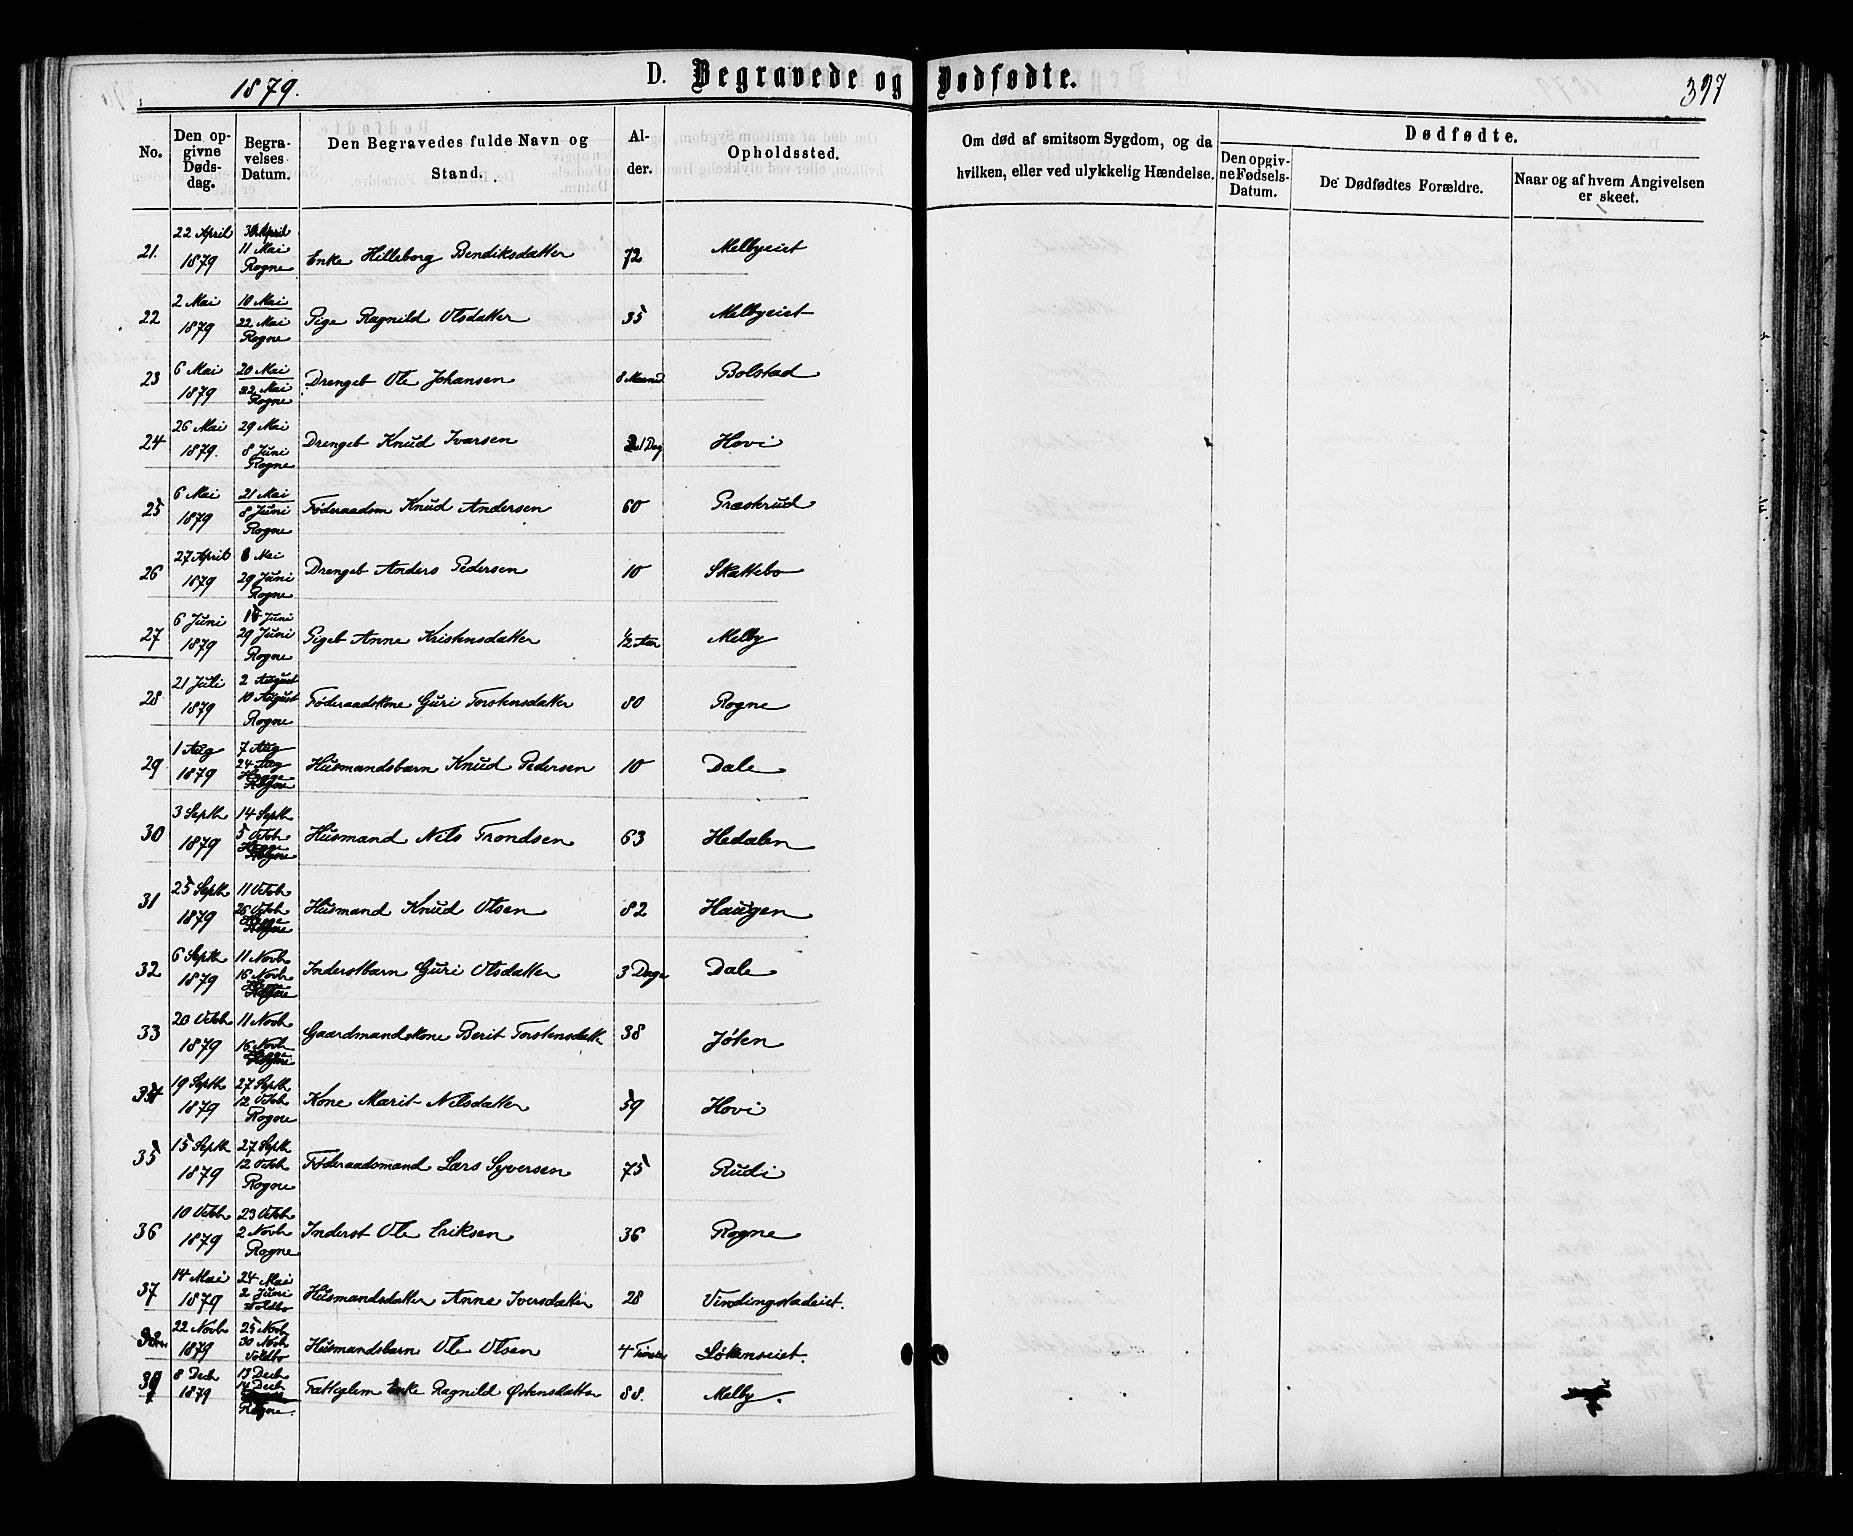 1879.
D. Begravede og Dødfødte.
397
No.
Den opgivne Dødsdag.
Begravelses Datum.
Den Begravedes fulde Navn og Stand.
Alder.
Opholdssted.
Om død af smitsom Sygdom, og da hvilken, eller ved ulykkelig Hændelse.
Dødfødte.
Den opgivne Fødsels-Datum.
De Dødfødtes Forældre.
Naar og af hvem Angivelsen er skeet.
21. 22 April 1879 30 April 11 Mai Rogne Enke Hilleborg Bendiksdatter 72 Melbyeiet
22 2 Mai 1879 10 Mai 22 Mai Rogne Pige Ragnild Olsdatter 35 Melbyeiet
23 6 Mai 1879 20 Mai 22 Mai Rogne Drengeb Ole Johansen 8 Maaned Bolstad
24 26 Mai 1879. 29 Mai 8 Juni Rogne Drengeb Knud Ivarsen Dag Hovi
25 6 Mai 1879 21 Mai 8 Juni Rogne Føderaadsm Knud Andersen 60 Præstrud
26 27 April 1879 8 Mai 29 Juni Rogne Drengeb Anders Pedersen 10 Skattebo
27 6 Juni 1879 15 Juni 29 Juni Rogne Pigeb Anne Kristensdatter 1/2 Aar Melby
28 21 Juli 1879 2 August 10 August Rogne Føderaadskone Guri Torstensdatter 80 Rogne
29 1 Aug 1879 7 Aug 24 Aug Hegge Rogne Husmandsbarn Knud Pedersen 10 Dale
30 3 Septb 1879 14 Septb 5 Octob Hegge Rogne Husmand Nils Trondsen 63 Hedalen
31 25 Septb 1879 11 Octob 26 Octob Hegge Rogne Husmand Knud Olsen 82 Haugen
32 6 Septb 1879 11 Novb 16 Novb Hegge Rogne Inderstbarn Guri Olsdatter 3 Dage Dale
33 20 Octob 1879 11 Novb 16 Novb Hegge Rogne Gaardmandskone Berit Torstensdatt 38 Jøten
34 19 Septb 1879 27 Septb 12 Octob Rogne Kone Marit Nilsdatter 59 Hovi
35 15 Septb 1879 27 Septb 12 Octob Rogne Føderaadsmand Lars Syversen 75 Rudi
36 10 Octob 1879 23 Octob 2 Novb Rogne Inderst Ole Eriksen 36 Rogne
37 14 Mai 1879 24 Mai 2 Juni Voldbo Husmandsdatter Anne Iversdatter 28 Vindingstadeiet.
22 Novb 1879 25 Novb 30 Novb Voldbo Husmandsbarn Ole Olsen 4 Løkenseiet.
39 8 Decb 1879 13 Decb 14 Decb Rogne. Fattiglem Enke Ragnild Østensdatter 88. Melby.